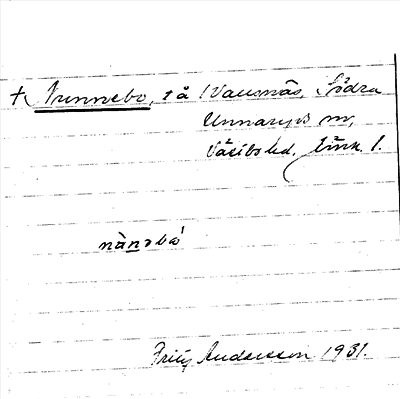 † Nunnebo, t å Vausnäs, Södra
Unnaryds sn,
Västbo hd. Jönk l.
nànəbó
Fritz Andersson 1931.